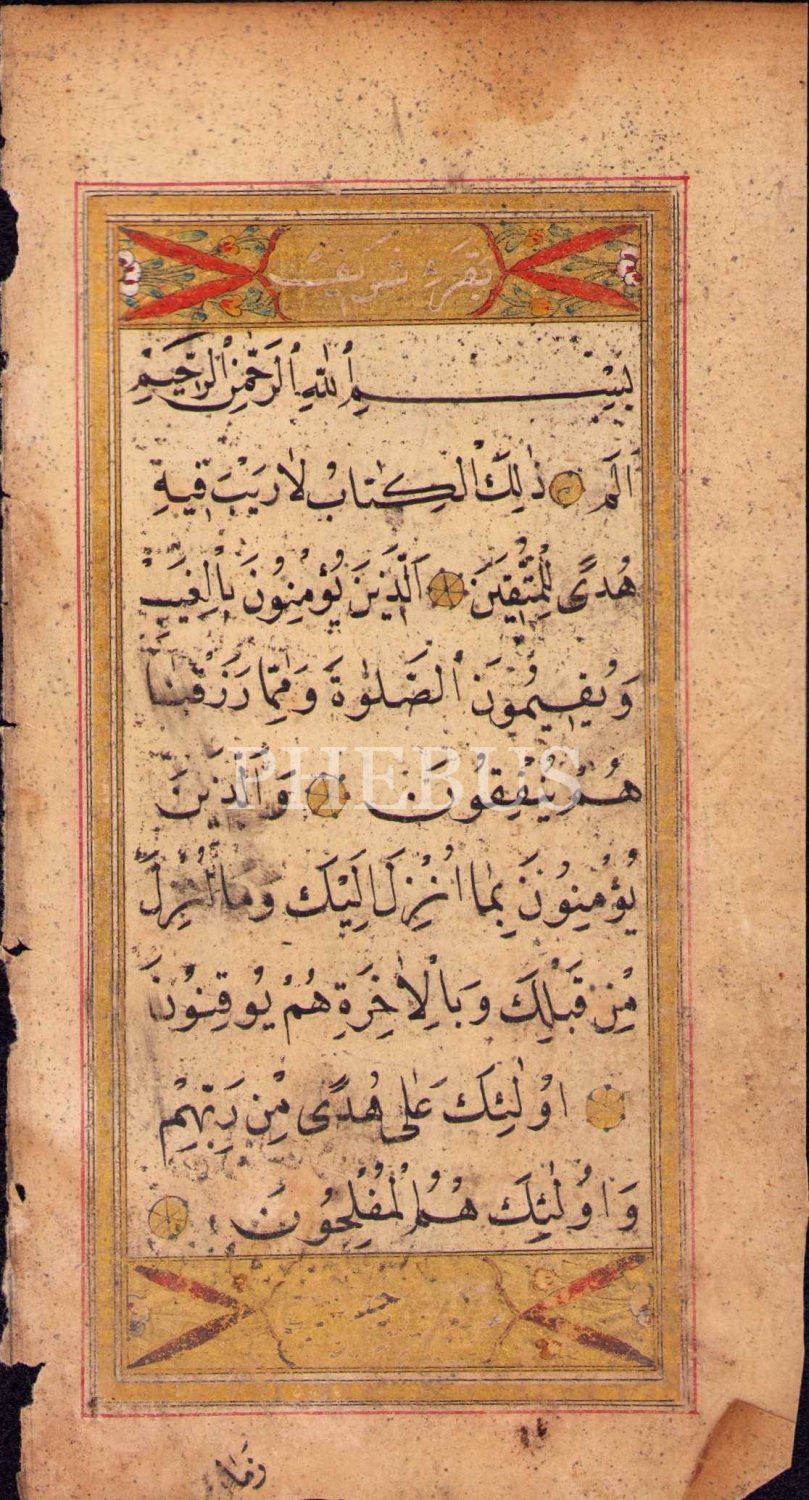 بِسْمِ اللّٰهِ الرَّحْمٰنِ الرَّحِيمِ
الٓمٓ ذٰلِكَ الْكِتَابُ لَا رَيْبَ فِيهِ
هُدًى لِلْمُتَّقِينَ اَلَّذِينَ يُؤْمِنُونَ بِالْغَيْبِ
وَيُقِيمُونَ الصَّلٰوةَ وَمِمَّا رَزَقْنَا
هُمْ يُنْفِقُونَ وَالَّذِينَ
PHEBUS
يُؤْمِنُونَ بِمَا اُنْزِلَ اِلَيْكَ وَمَا اُنْزِلَ
مِنْ قَبْلِكَ وَبِالْاٰخِرَةِ هُمْ يُوقِنُونَ
اُولٰئِكَ عَلٰى هُدًى مِنْ رَبِّهِمْ
وَاُولٰئِكَ هُمُ الْمُفْلِحُونَ